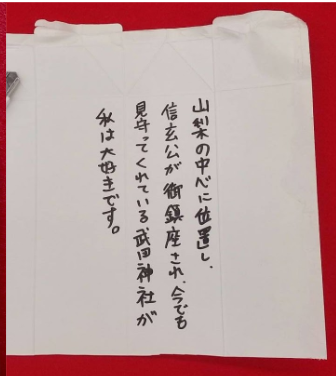 山梨の中心に位置し、
信玄公が御鎮座され、今でも
見守ってくれている武田神社が
私は大好きです。